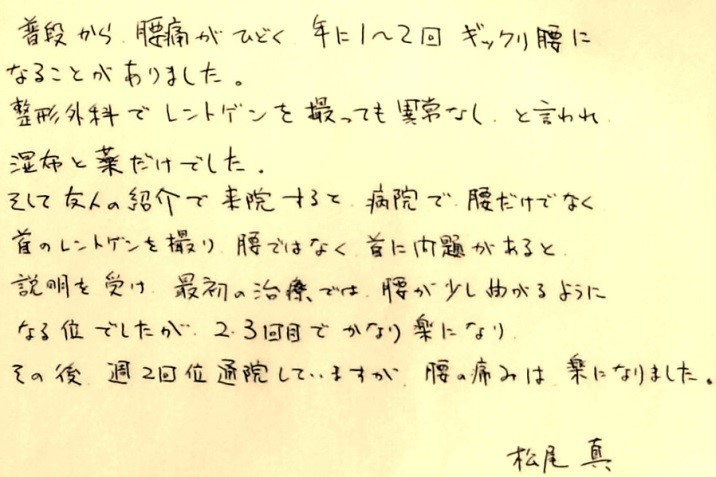 普段から 腰痛がひどく 年に1〜2回 ギックリ腰に
なることがありました。
整形外科でレントゲンを撮っても異常なし と言われ
湿布と薬だけでした。
そして友人の紹介で来院すると 病院で腰だけでなく
首のレントゲンを撮り 腰ではなく 首に問題があると
説明を受け 最初の治療では 腰が少し曲がるように
なる位でしたが 2.3回目でかなり楽になり
その後 週2回位通院していますが 腰の痛みは 楽になりました。
松尾 真